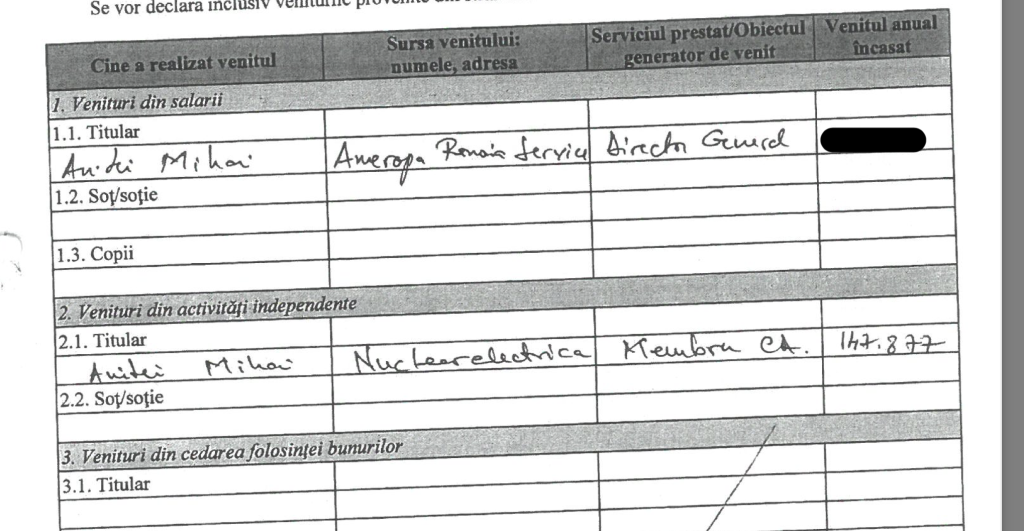 Se vor declara inclusiv veniturile provenite din
Cine a realizat venitul
Sursa venitului:
numele, adresa
Serviciul prestat/Obiectul
generator de venit
Venitul anual
încasat
1. Venituri din salarii
1.1. Titular
Anitei Mihai
Ameropa Romania Service
Director General
1.2. Soț/soție
1.3. Copii
2. Venituri din activități independente
2.1. Titular
Anitei Mihai
Nuclearelectrica
Membru CA.
147.877
2.2. Soț/soție
3. Venituri din cedarea folosinței bunurilor
3.1. Titular